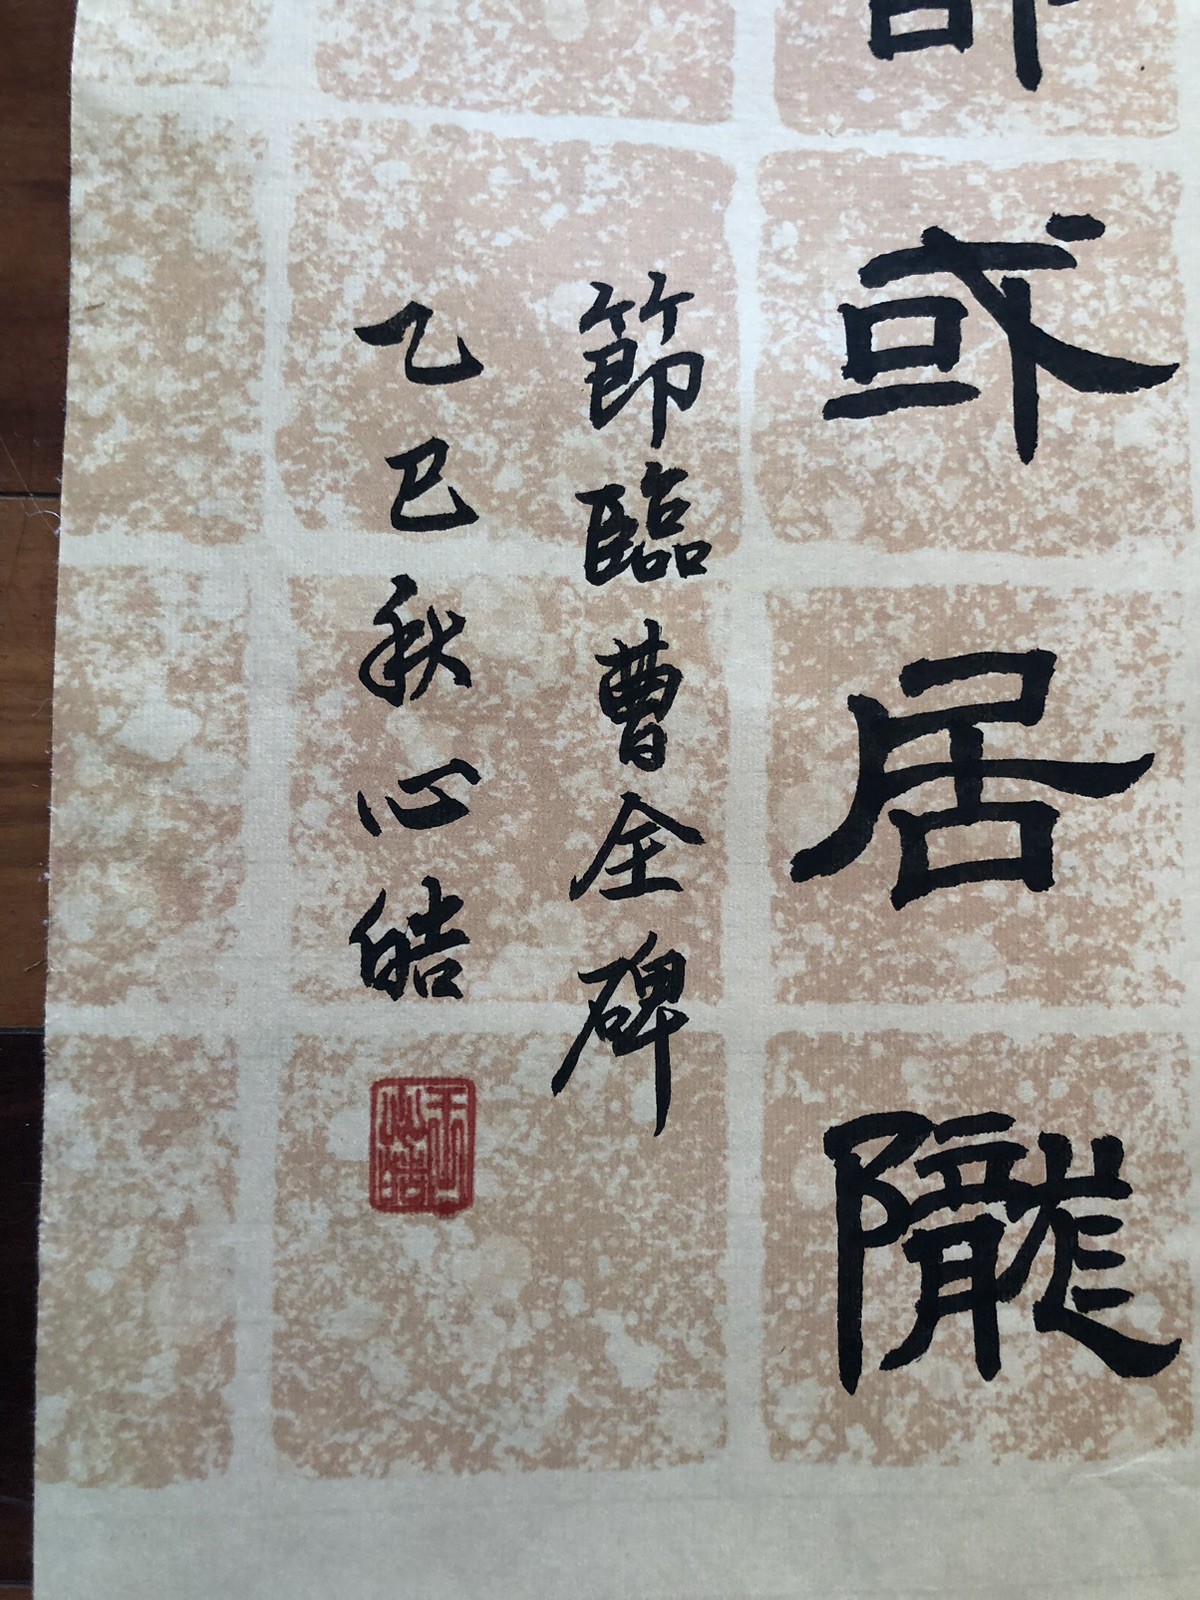 或居隴
節臨曹全碑
乙巳秋心皓